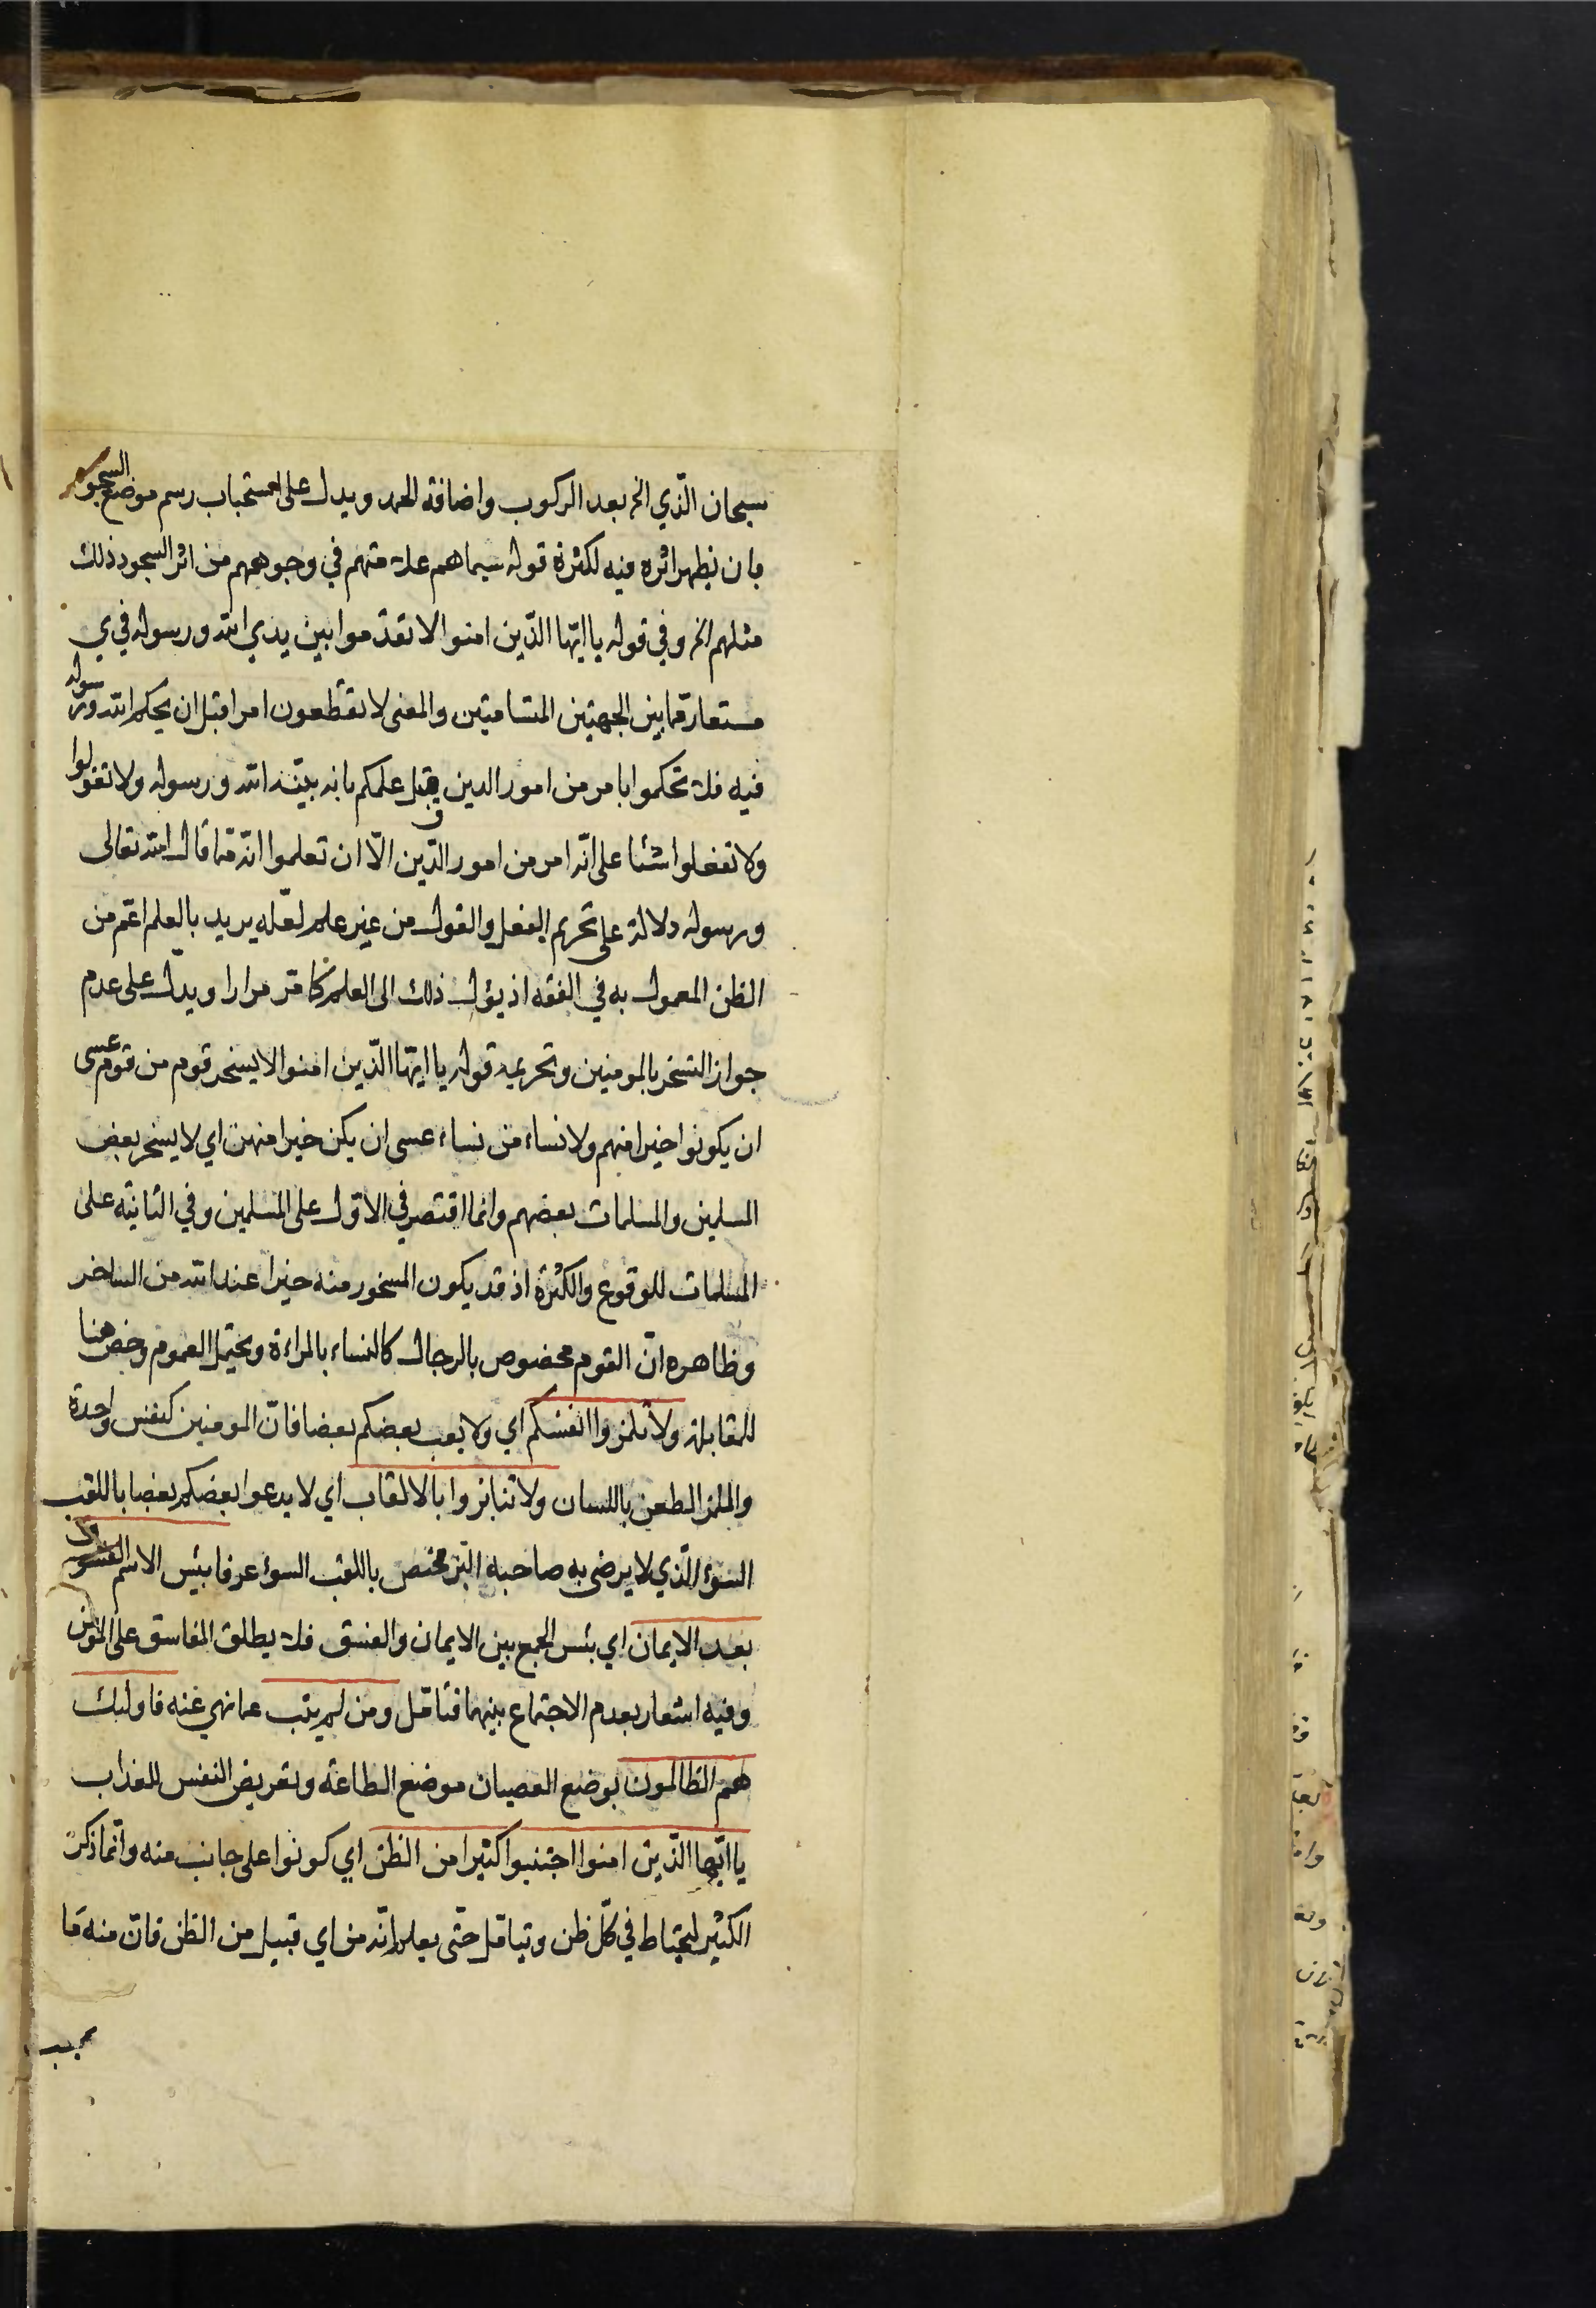 سبحان الّذي الخ بعد الركوب واضافة الحمد ويدل على استحباب رسم موضع السجود
بان يظهر اثره فيه لكثرة قوله سيماهم علامتهم في وجوههم من اثر السجود ذلك
مثلهم الخ وفي قوله يا ايّها الذّين امنوا لا تقدّموا بين يدي الله ورسوله في ي
مستعار مما بين الجهتين المتسامتين والمعنى لا تقطعون امرا قبل ان يحكم الله ورسوله
فيه فلا تحكموا بامر من امور الدين قبل علمكم بانه بيّنه الله ورسوله ولا تقولوا
ولا تفعلوا شئا على انّه امر من امور الدّين الّا ان تعلموا انّه مما قال الله تعالى
ورسوله دلالة على تحريم الفعل والقول من غير علم لعّله يريد بالعلم اعّم من
الظن المعمول به في الفقه اذ يؤل ذلك الى العلم كما مر مرارا ويدّل على عدم
جواز التسخر بالمومنين وتحريمه قوله يا ايّها الّذين امنوا لا يسخر قوم من قوم عسى
ان يكونوا خيرا منهم ولا نساء من نساء عسى ان يكن خيرا منهن اي لا يسخر بعض
المسلمين والمسلمات بعضهم وانما اقتصر في الاول على المسلمين وفي الثانيّه على
المسلمات للوقوع والكثرة اذ قد يكون المسخور منه خيرا عند الله من الساخر
وظاهره انّ القوم مخصوص بالرجال كالنساء بالمراءة ويحتمل العموم وخص هنا
للمقابلة ولا تلمزوا انفسكم اي ولا يعب بعضكم بعضا فانّ المومنين كنفس واحدة
والملز الطعن باللسان ولا تنابزوا بالالقاب اي لا يدعوا بعضكم بعضا باللقب
السوء الّذي لا يرضى به صاحبه النبز مختص باللقب السوء عرفا بئس الاسم الفسوق
بعد الايمان اي بئس الجمع بين الايمان والفسق فلا يطلق الفاسق على المومن
وفيه اشعار بعدم الاجتماع بينهما فتامّل ومن لم يتب عما نهي عنه فاولئك
هم الظالمون بوضع العصيان موضع الطاعة وتعريض النفس للعذاب
يا ايّها الّذين امنوا اجتنبوا كثيرا من الظن اي كونوا على جانب منه وانّما ذكر
الكثير ليحتاط في كلّ ظن ويتامّل حتّى يعلم انّه من اي قبيل من الظن فانّ منه ما
يجب